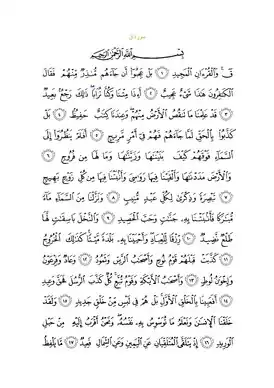 سورة ق
بِسْمِ اللَّهِ الرَّحْمَٰنِ الرَّحِيمِ
قٓ ۚ وَالْقُرْءَانِ الْمَجِيدِ ١ بَلْ عَجِبُوٓا۟ أَن جَآءَهُم مُّنذِرٌ مِّنْهُمْ فَقَالَ
الْكَٰفِرُونَ هَٰذَا شَىْءٌ عَجِيبٌ ٢ أَءِذَا مِتْنَا وَكُنَّا تُرَابًا ۖ ذَٰلِكَ رَجْعٌۢ بَعِيدٌ
٣ قَدْ عَلِمْنَا مَا تَنقُصُ الْأَرْضُ مِنْهُمْ ۖ وَعِندَنَا كِتَٰبٌ حَفِيظٌۢ ٤ بَلْ
كَذَّبُوا۟ بِالْحَقِّ لَمَّا جَآءَهُمْ فَهُمْ فِىٓ أَمْرٍ مَّرِيجٍ ٥ أَفَلَمْ يَنظُرُوٓا۟ إِلَى
السَّمَآءِ فَوْقَهُمْ كَيْفَ بَنَيْنَٰهَا وَزَيَّنَّٰهَا وَمَا لَهَا مِن فُرُوجٍ ٦
وَالْأَرْضَ مَدَدْنَٰهَا وَأَلْقَيْنَا فِيهَا رَوَٰسِىَ وَأَنۢبَتْنَا فِيهَا مِن كُلِّ زَوْجٍۭ بَهِيجٍ
٧ تَبْصِرَةً وَذِكْرَىٰ لِكُلِّ عَبْدٍ مُّنِيبٍ ٨ وَنَزَّلْنَا مِنَ السَّمَآءِ مَآءً
مُّبَٰرَكًا فَأَنۢبَتْنَا بِهِۦ جَنَّٰتٍ وَحَبَّ الْحَصِيدِ ٩ وَالنَّخْلَ بَاسِقَٰتٍ لَّهَا
طَلْعٌ نَّضِيدٌ ١٠ رِّزْقًا لِّلْعِبَادِ ۖ وَأَحْيَيْنَا بِهِۦ بَلْدَةً مَّيْتًا ۚ كَذَٰلِكَ الْخُرُوجُ
١١ كَذَّبَتْ قَبْلَهُمْ قَوْمُ نُوحٍ وَأَصْحَٰبُ الرَّسِّ وَثَمُودُ ١٢ وَعَادٌ وَفِرْعَوْنُ
وَإِخْوَٰنُ لُوطٍ ١٣ وَأَصْحَٰبُ الْأَيْكَةِ وَقَوْمُ تُبَّعٍ ۚ كُلٌّ كَذَّبَ الرُّسُلَ فَحَقَّ وَعِيدِ
١٤ أَفَعَيِينَا بِالْخَلْقِ الْأَوَّلِ ۚ بَلْ هُمْ فِى لَبْسٍ مِّنْ خَلْقٍ جَدِيدٍ ١٥ وَلَقَدْ
خَلَقْنَا الْإِنسَٰنَ وَنَعْلَمُ مَا تُوَسْوِسُ بِهِۦ نَفْسُهُۥ ۖ وَنَحْنُ أَقْرَبُ إِلَيْهِ مِنْ حَبْلِ
الْوَرِيدِ ١٦ إِذْ يَتَلَقَّى الْمُتَلَقِّيَانِ عَنِ الْيَمِينِ وَعَنِ الشِّمَالِ قَعِيدٌ ١٧ مَّا يَلْفِظُ